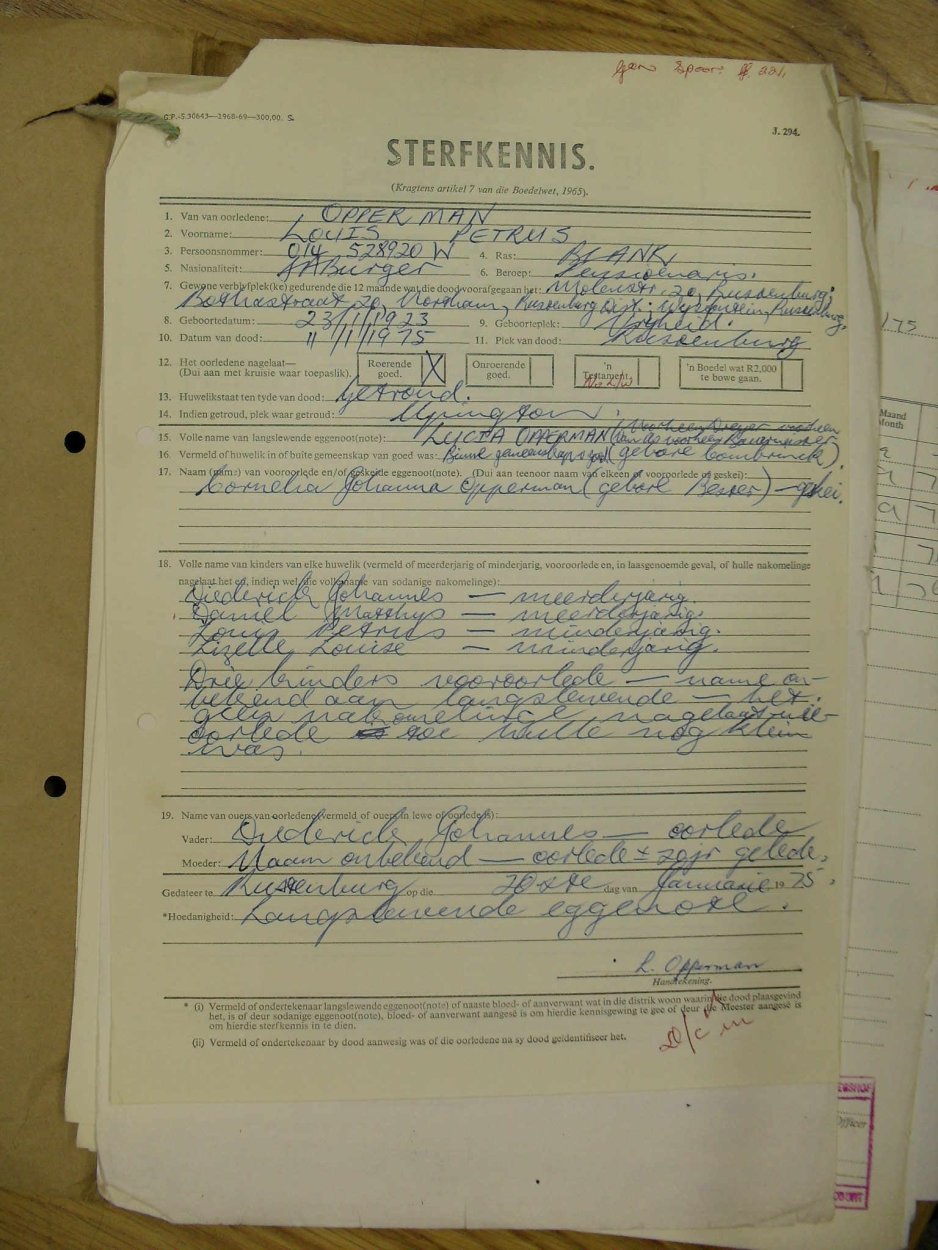 G.P.-S.30643—1968-69—300,00. S.
J. 294.
STERFKENNIS.
(Kragtens artikel 7 van die Boedelwet, 1965).
1. Van van oorledene: OPPERMAN
2. Voorname: LOUIS PETRUS
3. Persoonsnommer: 014 528920 W 4. Ras: BLANK
5. Nasionaliteit: SA Burger 6. Beroep: Pensioenaris.
7. Gewone verblyfplek(ke) gedurende die 12 maande wat die dood voorafgegaan het: Molenstr. 20, Rustenburg;
Bothastraat 20, Northam, Rustenburg Dist.; Rustenburg.
8. Geboortedatum: 23/1/1923 9. Geboorteplek: Vryheid.
10. Datum van dood: 11/1/1975 11. Plek van dood: Rustenburg
12. Het oorledene nagelaat—
(Dui aan met kruisie waar toepaslik).
Roerende goed. X
Onroerende goed.
'n Testament.
'n Boedel wat R2,000 te bowe gaan.
13. Huwelikstaat ten tyde van dood: Getroud.
14. Indien getroud, plek waar getroud: Upington.
15. Volle name van langslewende eggenoot(note): LYCIA OPPERMAN (voorheen Dreyer
16. Vermeld of huwelik in of buite gemeenskap van goed was: Binne gemeenskap v goed (gebore Combrinck).
17. Naam (name) van vooroorlede en/of geskeide eggenoot(note). (Dui aan teenoor naam van elkeen of vooroorlede of geskei):
Cornelia Johanna Opperman (gebore Bester) — geskei.
18. Volle name van kinders van elke huwelik (vermeld of meerderjarig of minderjarig, vooroorlede en, in laasgenoemde geval, of hulle nakomelinge
nagelaat het en, indien wel, die volle name van sodanige nakomelinge):
Diederick Johannes — meerderjarig.
Daniel Matthys — meerderjarig.
Louis Petrus — minderjarig.
Lizelle Louise — minderjarig.
Drie kinders vooroorlede — name on-
bekend aan langslewende — het
geen nakomelinge nagelaat nie —
oorlede toe hulle nog klein
was.
19. Name van ouers van oorledene (vermeld of ouers in lewe of oorlede is):
Vader: Diederick Johannes — oorlede
Moeder: Naam onbekend — oorlede ± 20 jr gelede.
Gedateer te Rustenburg op die 20ste dag van Januarie 1975.
*Hoedanigheid: Langslewende eggenote.
L. Opperman
Handtekening.
* (i) Vermeld of ondertekenaar langslewende eggenoot(note) of naaste bloed- of aanverwant wat in die distrik woon waarin die dood plaasgevind
het, is of deur sodanige eggenoot(note), bloed- of aanverwant aangesê is om hierdie kennisgewing te gee of deur die Meester aangesê is
om hierdie sterfkennis in te dien.
(ii) Vermeld of ondertekenaar by dood aanwesig was of die oorledene na sy dood geïdentifiseer het.
/75
Maand
Month
Officer